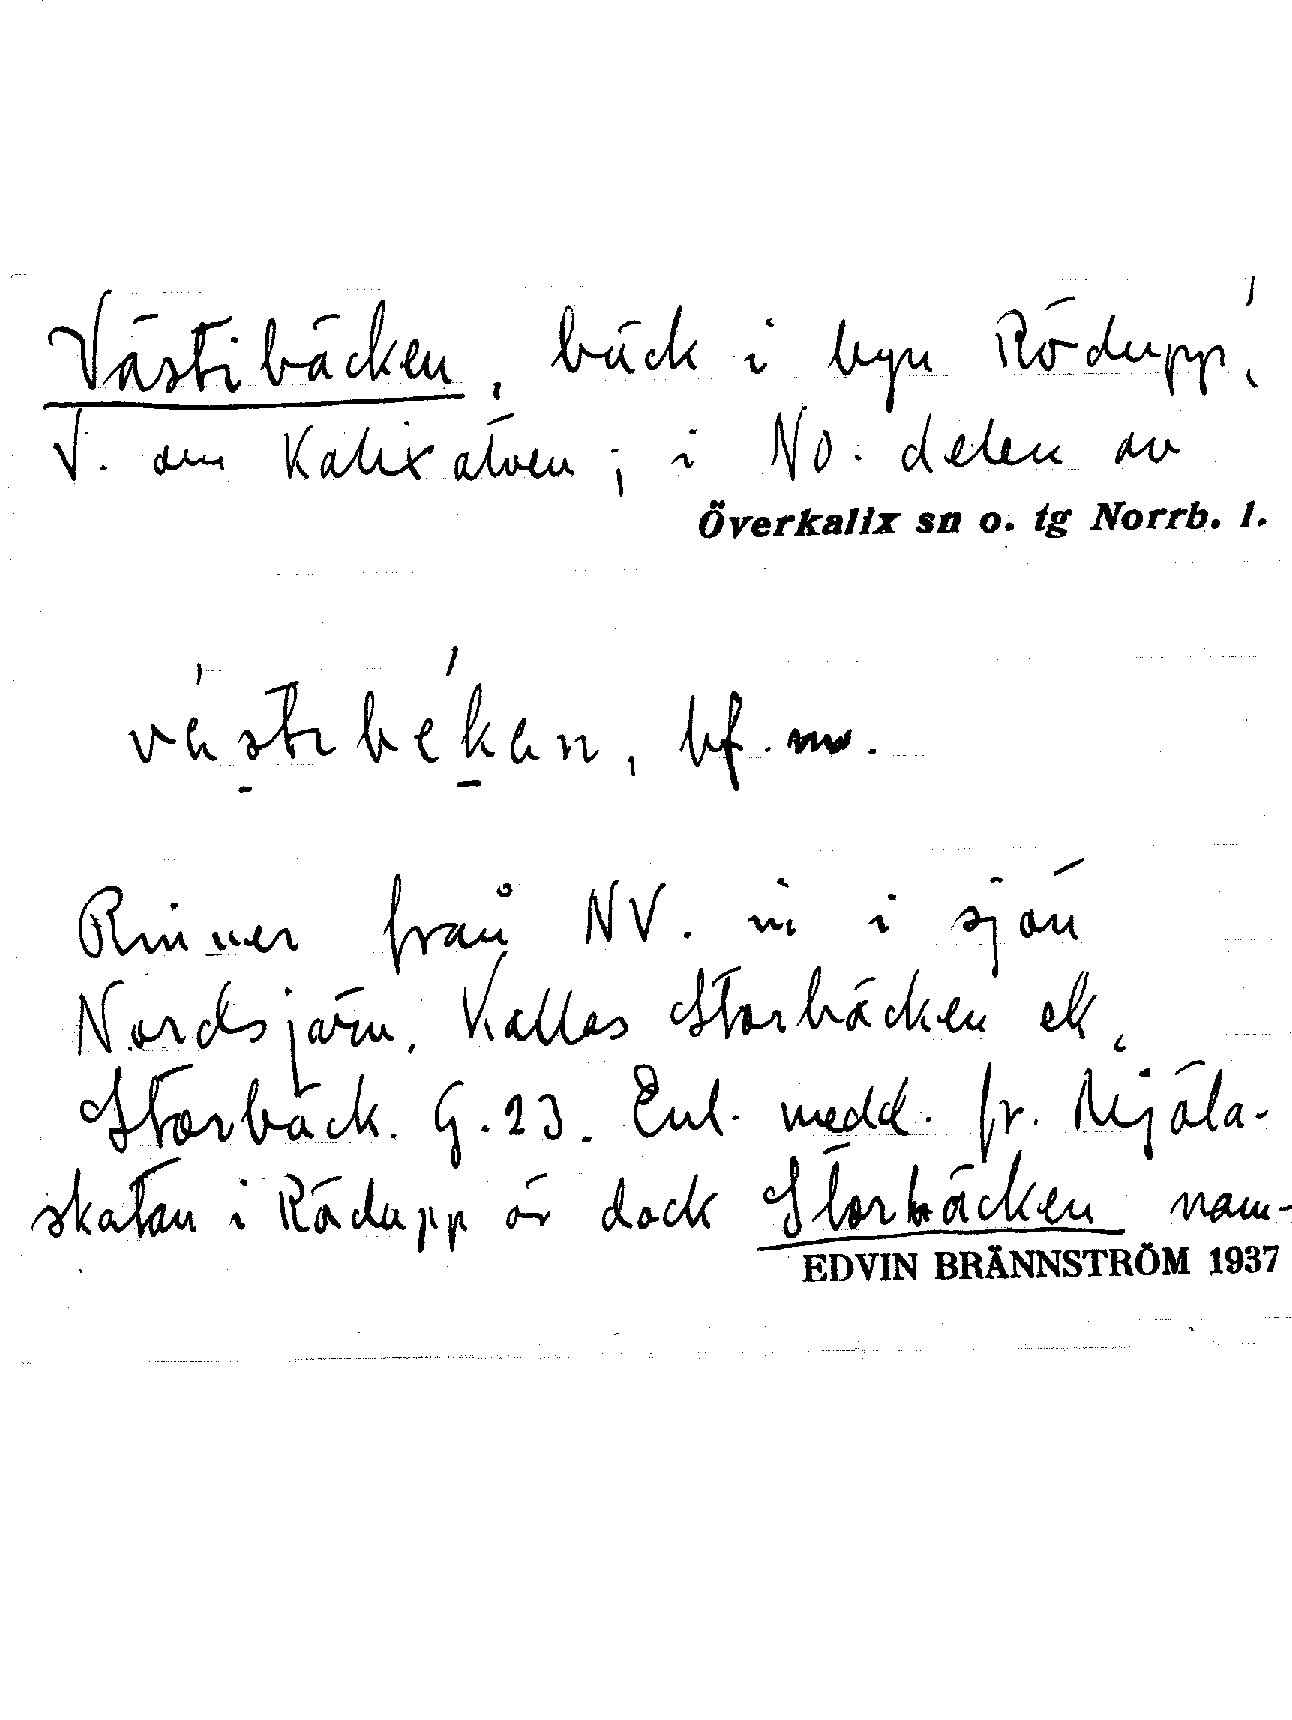 Västibäcken, bäck i byn Rödupp,
V. om Kalixälven; i NO. delen av
Överkalix sn o. tg Norrb. l.
västibekan, bf. m.
Rinner från NV. in i sjön
Nordsjärn. Kallas Storbäcken ell.
Storbäck. G. 23. Enl. medd. fr. Mjöla-
skatan i Rödupp är dock Storbäcken nam-
EDVIN BRÄNNSTRÖM 1937